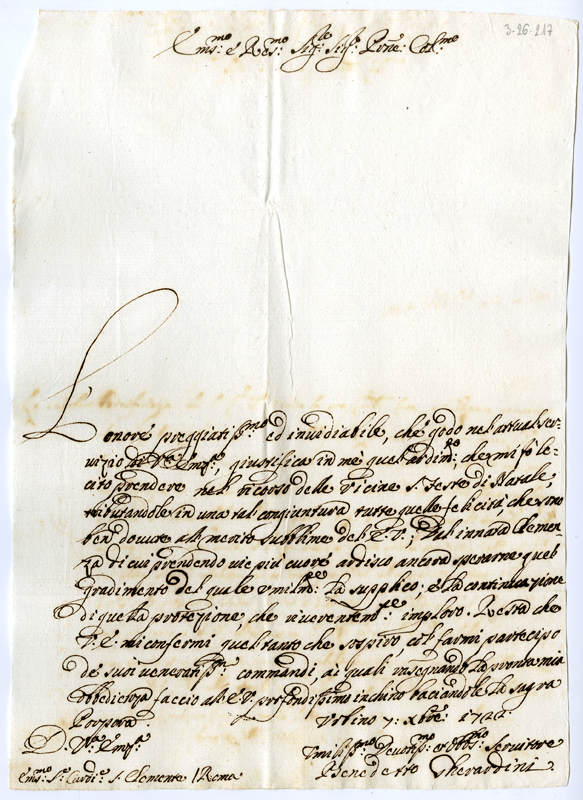 3-26-217
Em:mo e Re:mo Sig:r Sig:r Prne: Col:mo
Lonore preggiatiss:mo ed invidiabile, che godo nel attual ser-
vizio di V:ra Em:a, giustifica in me quel ardim:to, che mi fò le-
cito prendere nel ricorso delle vicine S. Feste di Natale,
tributandole in una tal congiuntura tutte quelle felicità che sono
ben dovute al merito sublime del E.V.; Dal innata Clemen-
za di cui prendendo vie più cuore ardisco ancora sperarne quel
gradimento del quale umilm:te La supplico; e La continuazione
di questa protezione, che riverentem:te imploro. Resta che
V.E. mi confermi quel tanto che sospiro, col farmi partecipe
de suoi veneratiss:mi commandi, ai quali insegnando La pronta mia
obbedienza faccio al E.V. profondissimo inchino baciandole La sagra
Porpora Urbino 7: Xbre: 1722
D. V:ra Em:a
Umiliss:mo Devotis:mo et Obb:mo Servitore
Em:mo Sr: Card:e S. Clemente / Roma Benedetto Gherardini